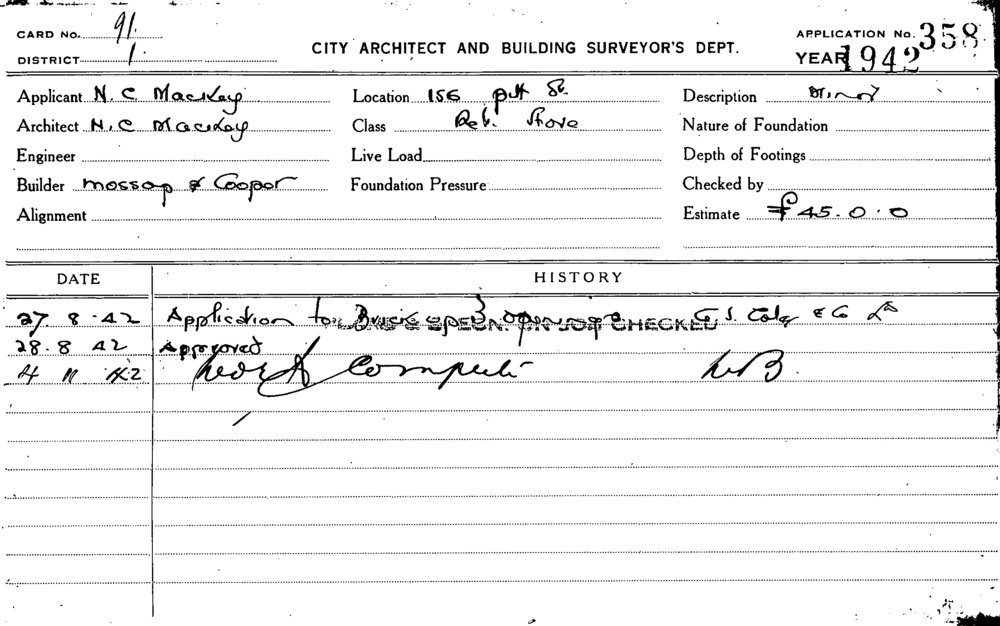 CARD No. 91.
DISTRICT 1
CITY ARCHITECT AND BUILDING SURVEYOR'S DEPT.
APPLICATION No. 358
YEAR 1942
Applicant N. C Mackey
Location 156 pitt St.
Description Minor
Architect N. C Mackey
Class Ret. Store
Nature of Foundation
Engineer
Live Load
Depth of Footings
Builder Mossop & Cooper
Foundation Pressure
Checked by
Alignment
Estimate £45.0.0
DATE HISTORY
27. 8. 42 Application to Brick up 3 openings G. J. Coles & Co Ld
SPECN. ON JOB CHECKED
28. 8 42 Approved
4 11 42 Work Complete WB